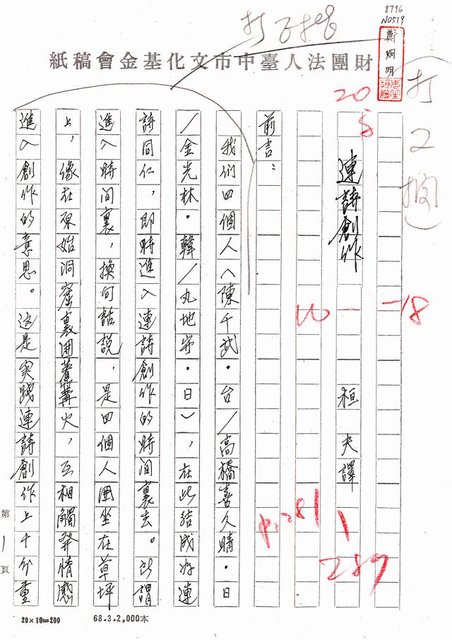 8796
N0519
鄭烱明
打2摘
打子摘
財團法人臺中市文化基金會稿紙
20
5
連詩創作
桓夫譯
10—18
P.281
289
前言：
我們四個人（陳千武・台／高橋喜久晴・日
／金光林・韓／丸地守・日），在此結成連
詩同仁，即時進入連詩創作的時間裏去。所謂
進入時間裏，換句話說，是四個人圍坐在草坪
上，像在原始洞窟裏圍著篝火，互相觸發情感
進入創作的意思。這是實踐連詩創作上十分重
第1頁
20×10=200
68.3.2,000本